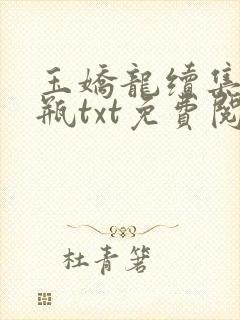 玉嬌龍續集
瓶txt免費閱
杜青箸